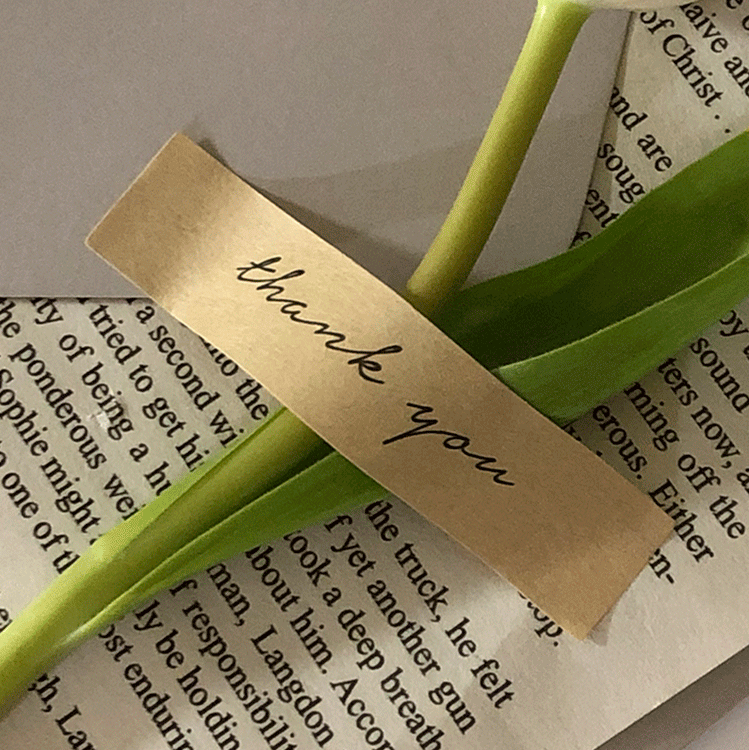 thank you
of Christ . .
and are
the truck, he felt
f yet another gun
took a deep breath
about him. Accor
man, Langdon
f responsibilit
ly be holdin
ost endurin
a second wi
tried to get hi
ty of being a hu
he ponderous wei
Sophie might
to one of th
nto the
sound
ters now, a
ming off the
erous. Either
en-
top.